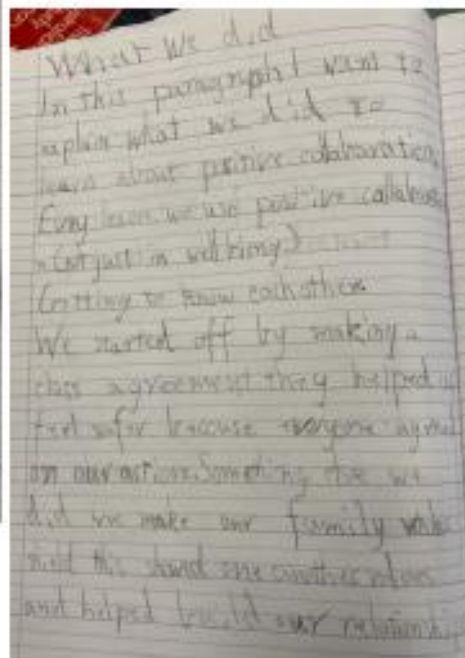 What we did
In this paragraph I want to
explain what we did to
learn about positive collaboration.
Every lesson we use positive
(not just in wellbeing)
Getting to know each other
We started off by making a
class agreement they helped
feel safer because everyone agreed
on our actions. Something else we
did we make our family
this shared one another values
and helped build our relationship